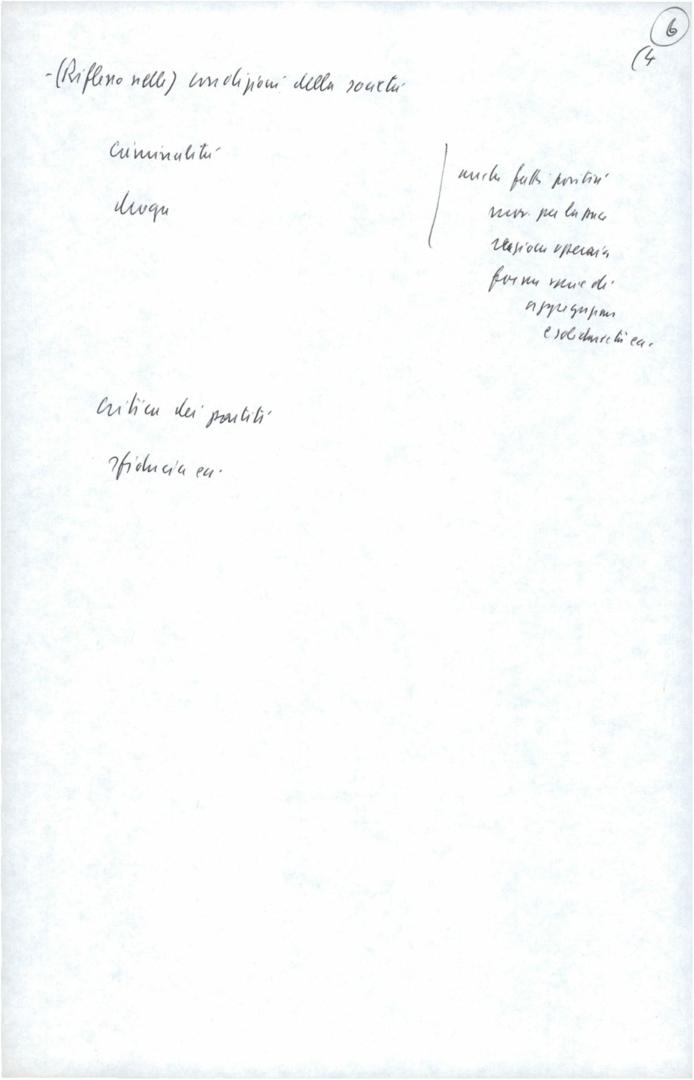 6
(4
- (Riflesso nelle) condizioni della società
criminalità
droga
anche fatti positivi
mov. per la pace
tensione operaia
forme varie di
aggregazione
e solidarietà ecc.
critica dei partiti
sfiducia ecc.